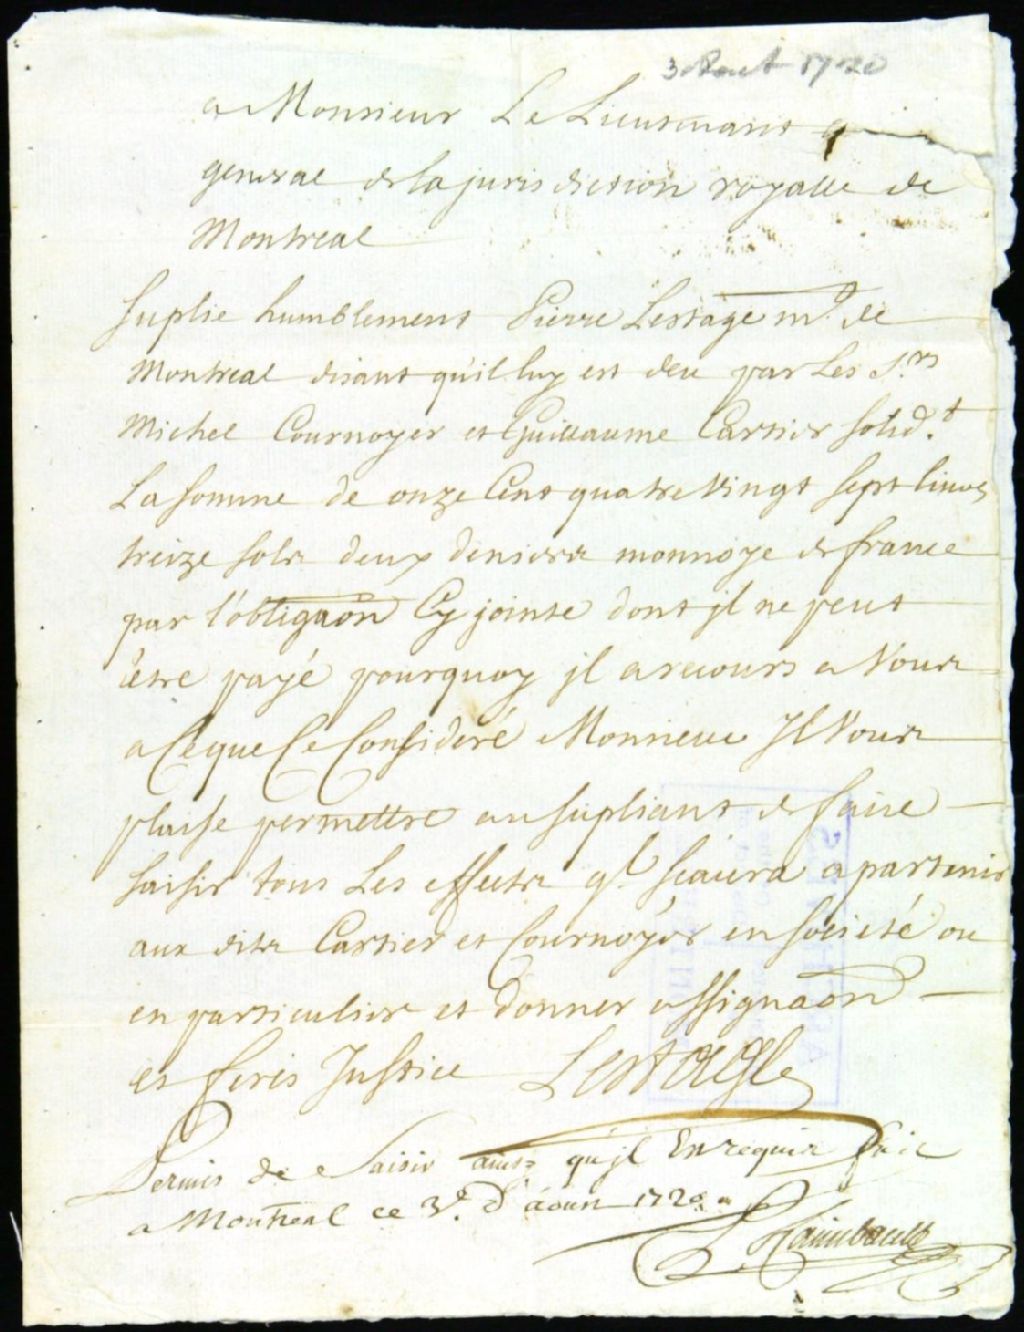 3 Aout 1720
a Monsieur Le Lieutenant
general de la jurisdiction royalle de
Montreal
Suplie humblement Pierre Lestage m.d de
Montreal disant qu'il luy est deu par Les S.rs
Michel Cournoyer et Guillaume Cartier solid.t
La somme de onze Cent quatre Vingt sept livres
treize sols deux deniers monnoye de france
par l'obligaõn Cy jointe dont jl ne peut
être payé pourquoy jl a recours a Vous
a Ce que Ce Consideré Monsieur Jl Vous
plaise permettre au supliant de faire
saisir tous Les effects q.l scaura apartenir
aux dits Cartier et Cournoyer en société ou
en particulier et donner assignaõn
et ferés Justice Lestage
Permis de Saisir ainsy qu'jl En requir fait
a Montreal ce 3.e d'aoust 1720
Raimbault